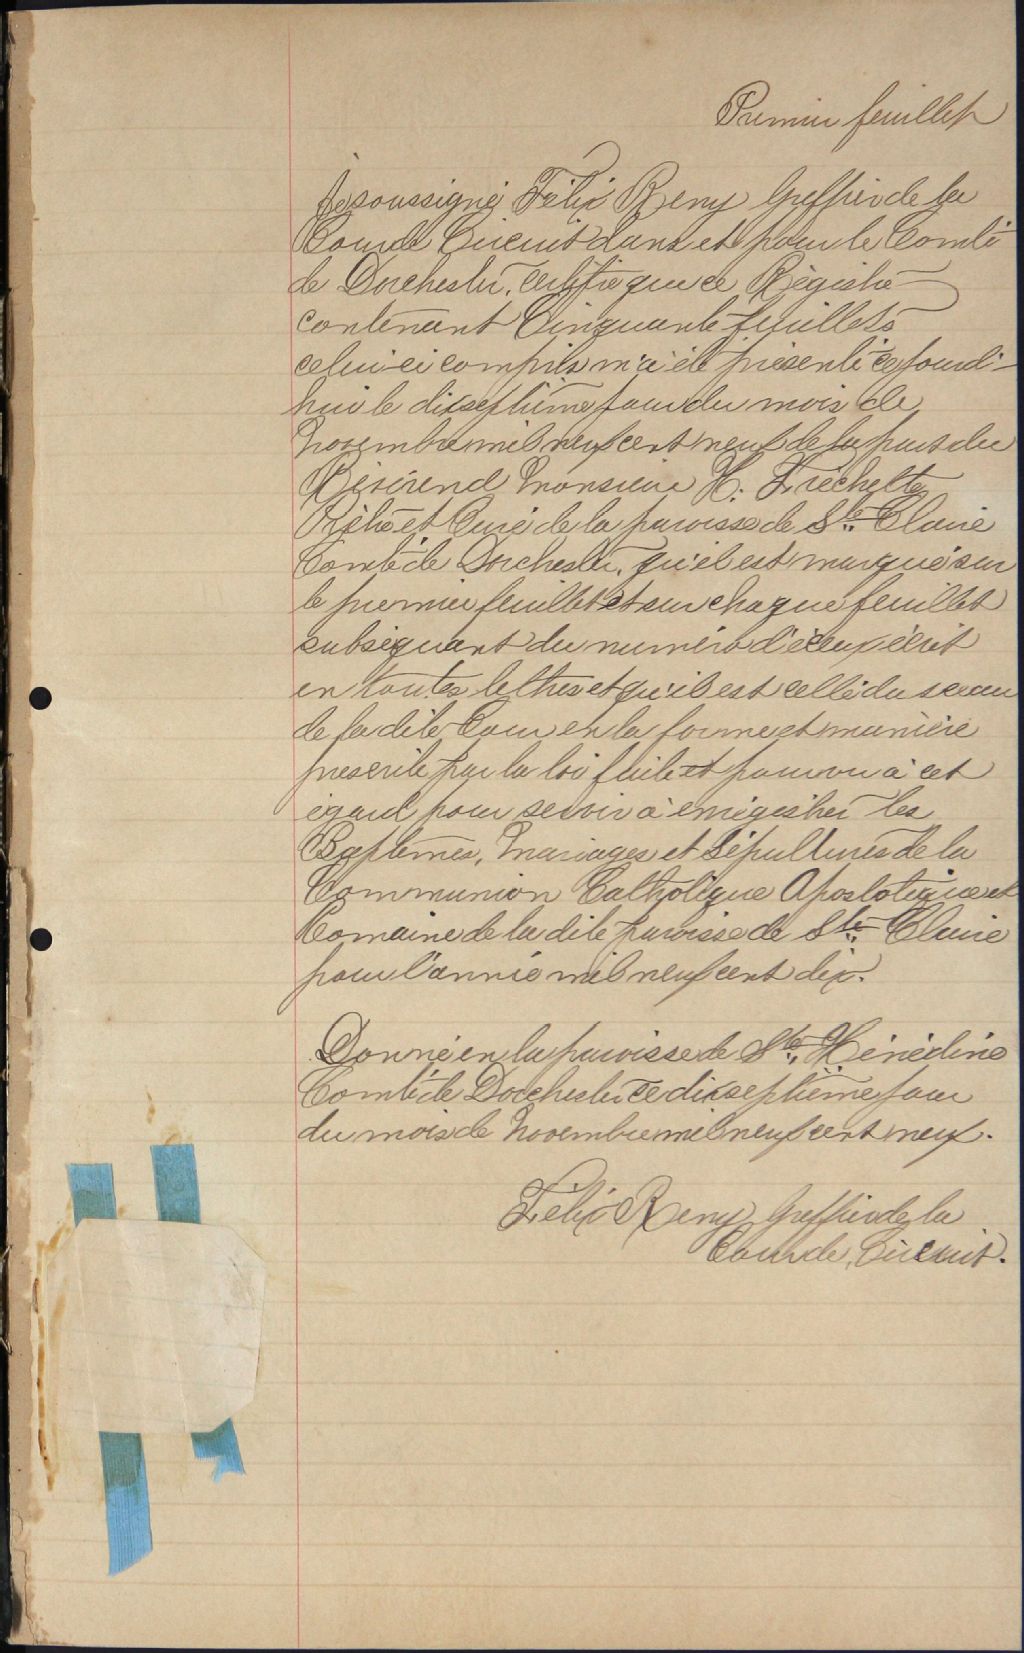 Premier feuillet
Je soussigné Félix Remy Greffier de la
Cour de Circuit dans et pour le Comté
de Dorchester, certifie que ce Régistre
contenant Cinquante feuillets
celui-ci compris m'a été présenté ce jourd'-
hui le dixseptième jour du mois de
Novembre mil neuf cent neuf de la part du
Révérend Monsieur H. Fréchette
Prêtre et Curé de la paroisse de Ste Claire
Comté de Dorchester, qu'il est marqué sur
le premier feuillet et sur chaque feuillet
subséquant du numéro d'iceux écrit
en toutes lettres et qu'il est cellé du sceau
de la dite Cour en la forme et manière
prescrite par la loi faite et pourvu à cet
égard pour servir à enrégistrer les
Baptêmes, Mariages et Sépultures de la
Communion Catholique Apostolique et
Romaine de la dite paroisse de Ste Claire
pour l'année mil neuf cent dix.
Donné en la paroisse de Ste Hénédine
Comté de Dorchester ce dixseptième jour
du mois de Novembre mil neuf cent neuf.
Félix Remy Greffier de la
Cour de Circuit.